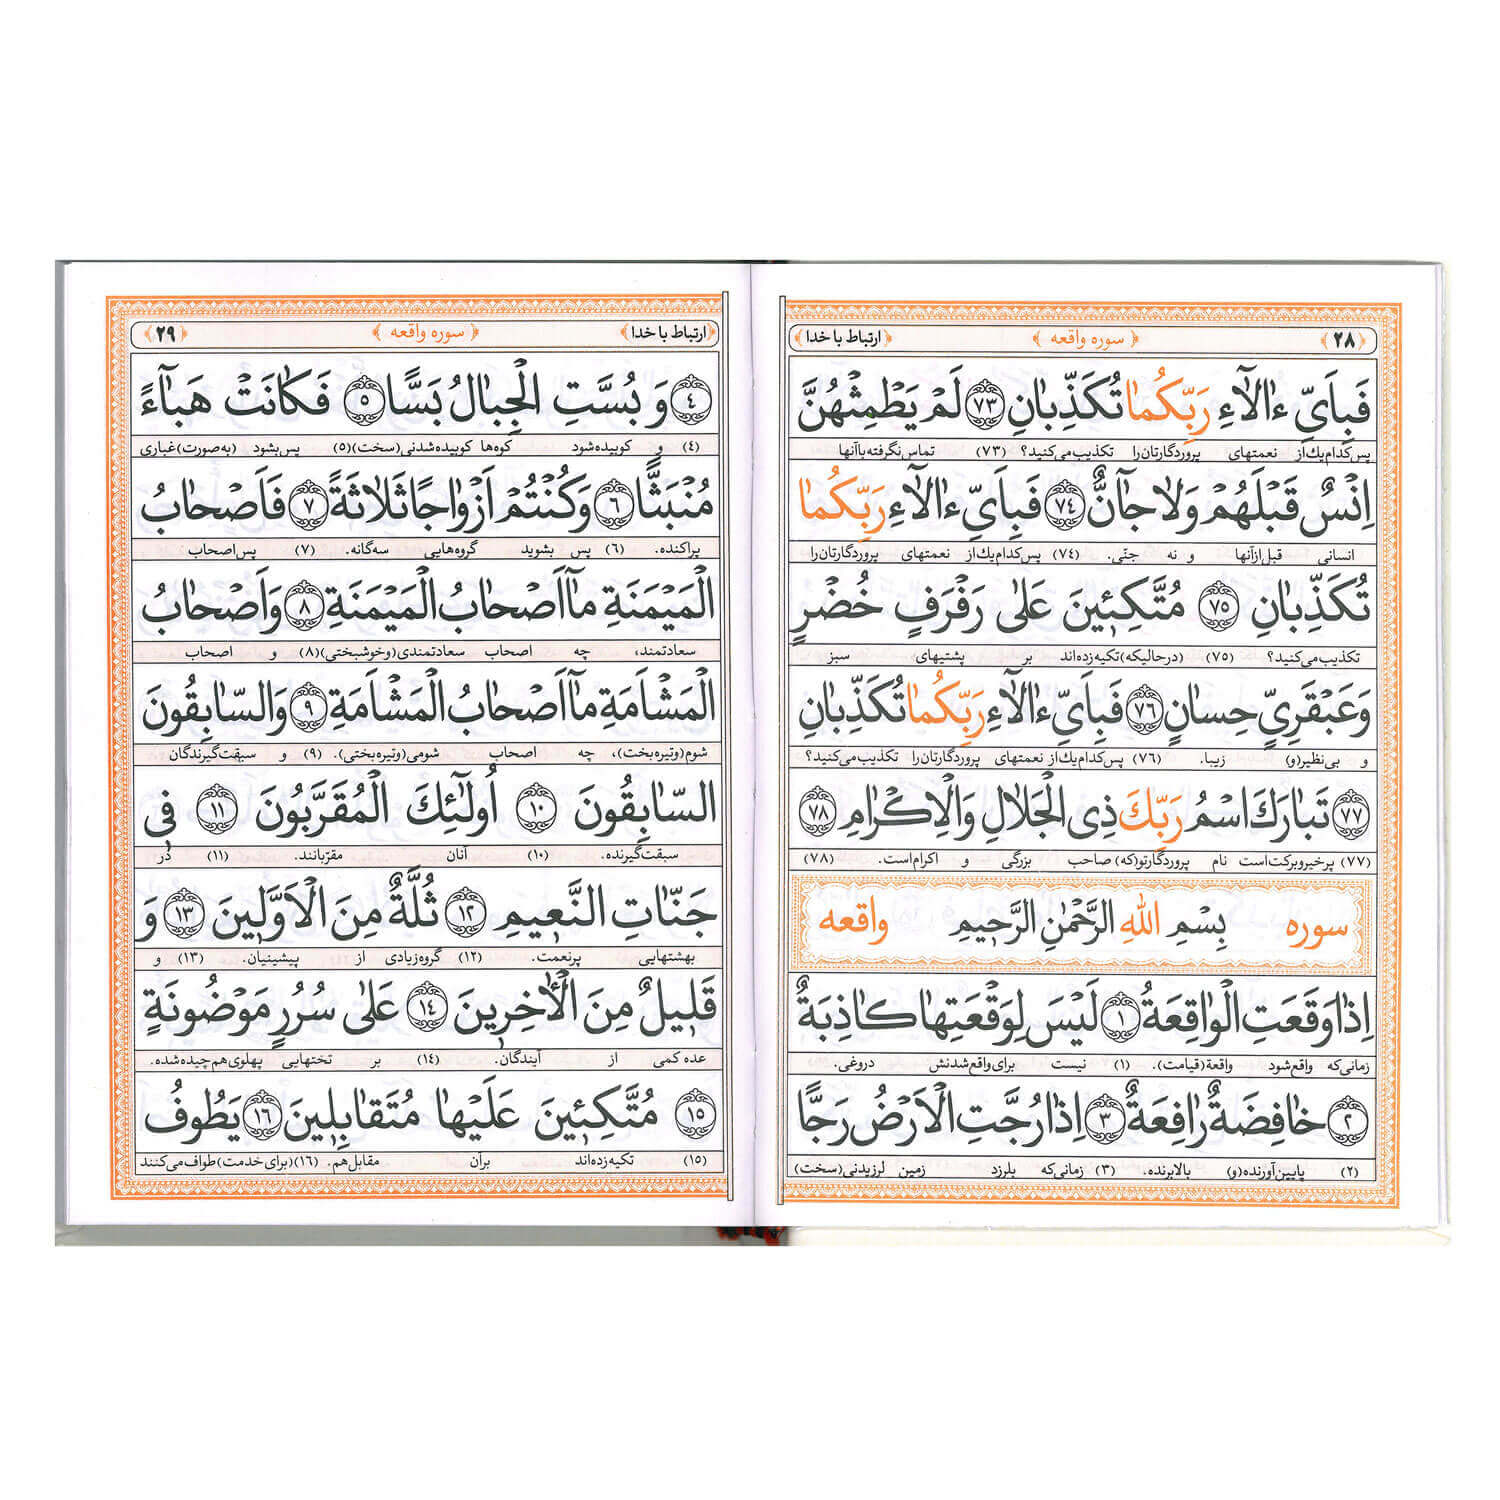 ﴿۲۸﴾ ﴿سوره واقعه﴾ ﴿ارتباط با خدا﴾
فَبِاَيِّ ءٰالٰٓاءِ رَبِّكُمٰا تُكَذِّبٰانِ ﴿٧٣﴾ لَمْ يَطْمِثْهُنَّ
پس کدام یك از نعمتهای پروردگارتان را تکذیب می‌کنید؟ (۷۳) تماس نگرفته با آنها
اِنْسٌ قَبْلَهُمْ وَلٰا جٰٓانٌّ ﴿٧٤﴾ فَبِاَيِّ ءٰالٰٓاءِ رَبِّكُمٰا
انسانی قبل از آنها و نه جنّی. (۷۴) پس کدام یك از نعمتهای پروردگارتان را
تُكَذِّبٰانِ ﴿٧٥﴾ مُتَّكِـٔينَ عَلىٰ رَفْرَفٍ خُضْرٍ
تکذیب می‌کنید؟ (۷۵) (در حالیکه) تکیه زده‌اند بر پشتیهای سبز
وَ عَبْقَرِيٍّ حِسٰانٍ ﴿٧٦﴾ فَبِاَيِّ ءٰالٰٓاءِ رَبِّكُمٰا تُكَذِّبٰانِ
و بی‌نظیر(و) زیبا. (۷۶) پس کدام یك از نعمتهای پروردگارتان را تکذیب می‌کنید؟
﴿٧٧﴾ تَبٰارَكَ اسْمُ رَبِّكَ ذِي الْجَلٰالِ وَالْاِكْرٰامِ ﴿٧٨﴾
(۷۷) پرخیر و برکت است نام پروردگار تو(که) صاحب بزرگی و اکرام است. (۷۸)
سوره بِسْمِ اللهِ الرَّحْمٰنِ الرَّحيمِ واقعه
اِذٰا وَقَعَتِ الْوٰاقِعَةُ ﴿١﴾ لَيْسَ لِوَقْعَتِهٰا كٰاذِبَةٌ
زمانی که واقع شود واقعة(قیامت). (۱) نیست برای واقع شدنش دروغی.
﴿٢﴾ خٰافِضَةٌ رٰافِعَةٌ ﴿٣﴾ اِذٰا رُجَّتِ الْاَرْضُ رَجًّا
(۲) پایین آورنده(و) بالابرنده. (۳) زمانی که بلرزد زمین لرزیدنی(سخت)
﴿ارتباط با خدا﴾ ﴿سوره واقعه﴾ ﴿۲۹﴾
﴿٤﴾ وَ بُسَّتِ الْجِبٰالُ بَسًّا ﴿٥﴾ فَكٰانَتْ هَبٰٓاءً
(۴) و کوبیده شود کوه‌ها کوبیده شدنی(سخت) (۵) پس بشود (به صورت) غباری
مُنْبَثًّا ﴿٦﴾ وَ كُنْتُمْ اَزْوٰاجًا ثَلٰاثَةً ﴿٧﴾ فَاَصْحٰابُ
پراکنده. (۶) پس بشوید گروه‌هایی سه گانه. (۷) پس اصحاب
الْمَيْمَنَةِ مٰٓا اَصْحٰابُ الْمَيْمَنَةِ ﴿٨﴾ وَ اَصْحٰابُ
سعادتمند، چه اصحاب سعادتمندی(وخوشبختی) (۸) و اصحاب
الْمَشْاَمَةِ مٰٓا اَصْحٰابُ الْمَشْاَمَةِ ﴿٩﴾ وَالسّٰابِقُونَ
شوم(وتیره‌بخت)، چه اصحاب شومی(وتیره‌بختی). (۹) و سبقت گیرندگان
السّٰابِقُونَ ﴿١٠﴾ اُولٰٓئِكَ الْمُقَرَّبُونَ ﴿١١﴾ في
سبقت گیرنده. (۱۰) آنان مقرّبانند. (۱۱) در
جَنّٰاتِ النَّعيمِ ﴿١٢﴾ ثُلَّةٌ مِنَ الْاَوَّلينَ ﴿١٣﴾ وَ
بهشتهایی پرنعمت. (۱۲) گروه زیادی از پیشینیان. (۱۳) و
قَليلٌ مِنَ الْاٰخِرينَ ﴿١٤﴾ عَلىٰ سُرُرٍ مَوْضُونَةٍ
عده کمی از آیندگان. (۱۴) بر تختهایی پهلوی هم چیده شده.
﴿١٥﴾ مُتَّكِـٔينَ عَلَيْهٰا مُتَقٰابِلينَ ﴿١٦﴾ يَطُوفُ
(۱۵) تکیه زده‌اند برآن مقابل هم. (۱۶) (برای خدمت) طواف می‌کنند